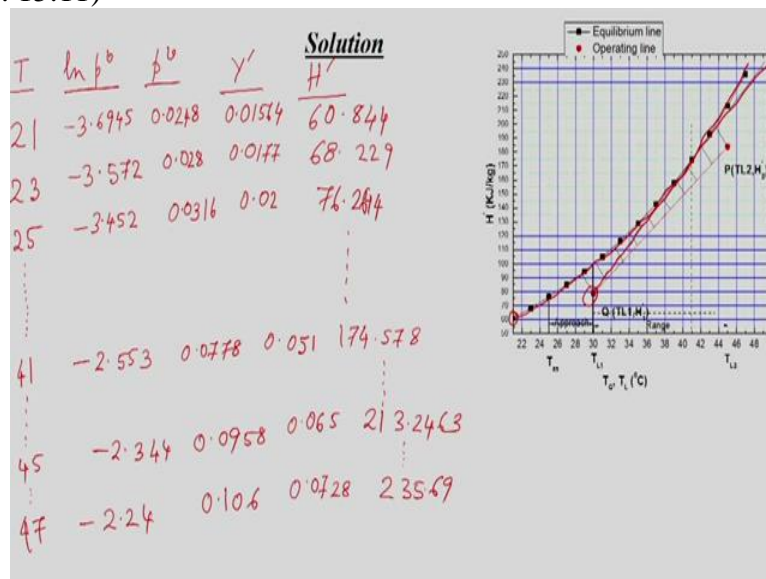 Solution
T ln p⁰ p⁰ Y′ H′
21 -3.6945 0.0248 0.01564 60.844
23 -3.572 0.028 0.0177 68.229
25 -3.452 0.0316 0.02
41 -2.553 0.0778 0.051 174.578
45 -2.344 0.0958 0.065 213.2463
47 -2.24 0.106 0.0728 235.69
Equilibrium line
Operating line
H′ (KJ/kg)
250
240
230
120
110
100
90
80
70
60
50
P(TL2,H
Q (TL1,H
Approach
Range
22 24 26 28 30 32 34 36 38 40 42 44 46 48
T_L1 T_L2
T_G, T_L (⁰C)